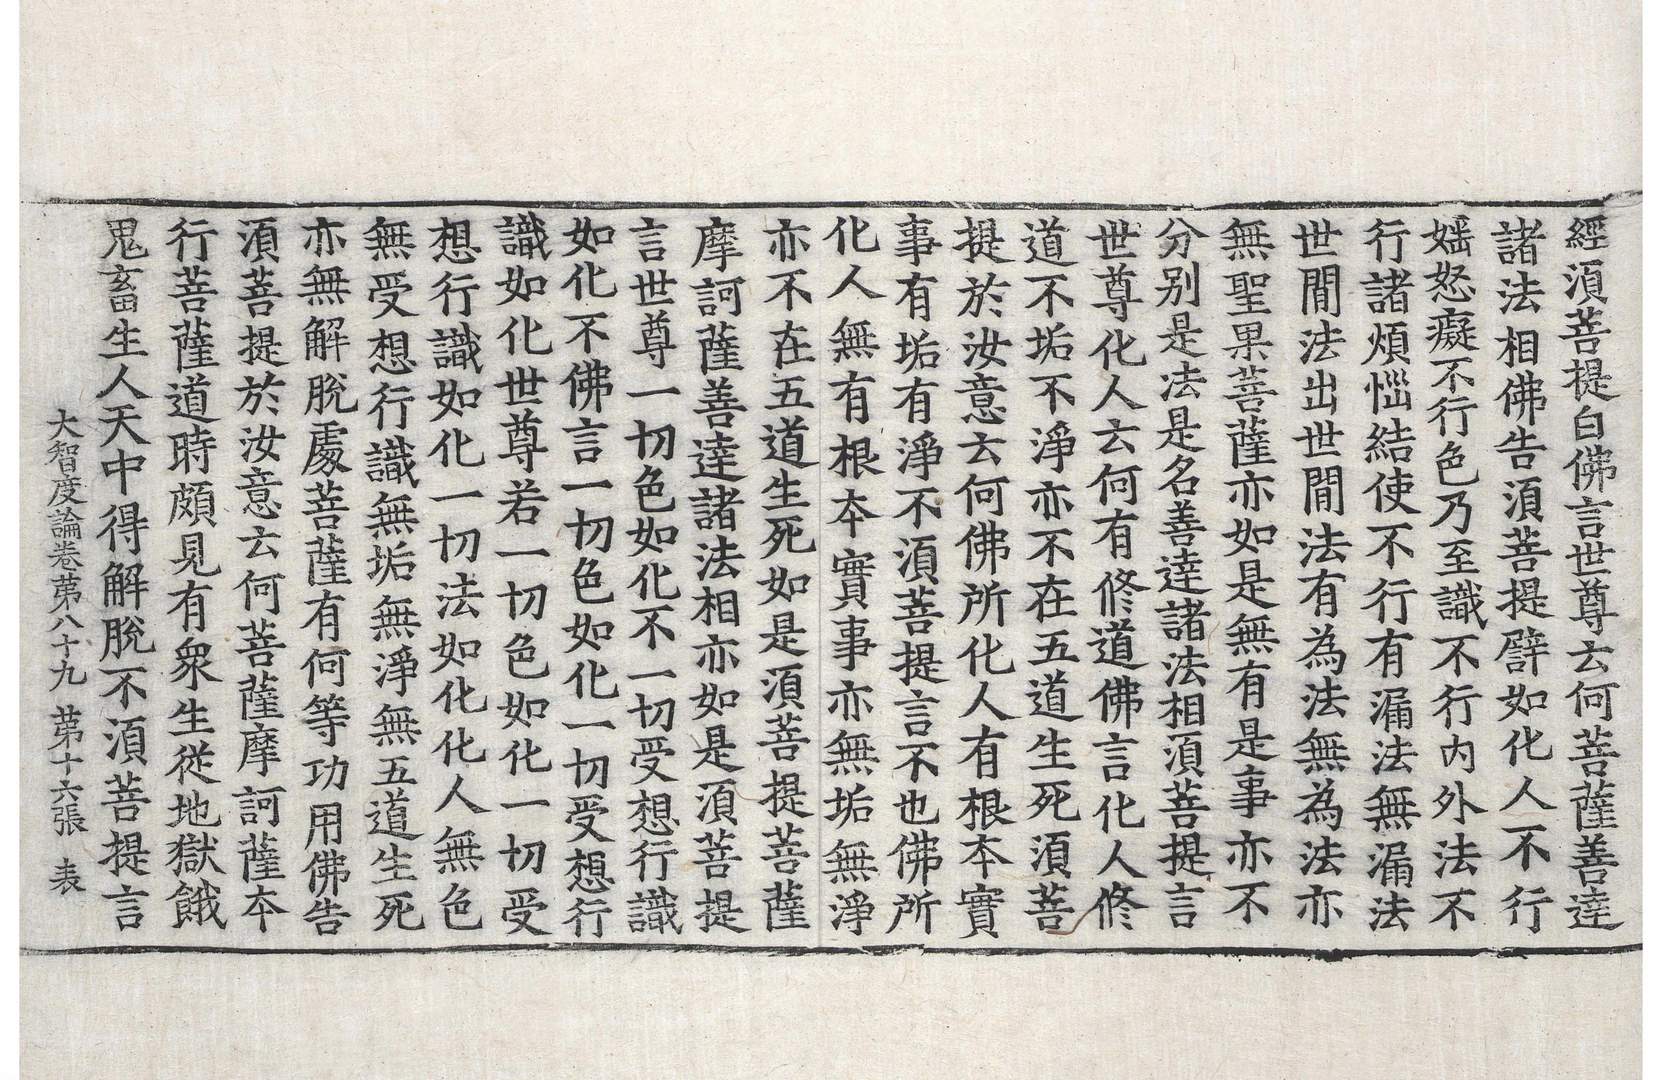 經湏菩提白佛言世尊云何菩薩善達
諸法相佛告湏菩提譬如化人不行
婬怒癡不行色乃至識不行内外法不
行諸煩惱結使不行有漏法無漏法
世間法出世間法有為法無為法亦
無聖果菩薩亦如是無有是事亦不
分别是法是名善達諸法相湏菩提言
世尊化人云何有修道佛言化人修
道不垢不淨亦不在五道生死湏菩
提於汝意云何佛所化人有根本實
事有垢有淨不湏菩提言不也佛所
化人無有根本實事亦無垢無淨
亦不在五道生死如是湏菩提菩薩
摩訶薩善達諸法相亦如是湏菩提
言世尊一切色如化不一切受想行識
如化不佛言一切色如化一切受想行
識如化世尊若一切色如化一切受
想行識如化一切法如化化人無色
無受想行識無垢無淨無五道生死
亦無解脫處菩薩有何等功用佛告
湏菩提於汝意云何菩薩摩訶薩本
行菩薩道時頗見有衆生從地獄餓
鬼畜生人天中得解脫不湏菩提言
大智度論卷苐八十九 苐十六張 表